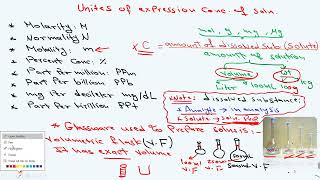 Unites of expression Conc. of soln.
* Molarity: M
* Normality N
* Molality: m
* Percent Conc. %
* Part Per million: PPm
* Part Per billion: PPb
* mg Per deciliter mg/dL
* Part Per trillion PPt
mol, g, mg, Mg
* C = amount of dissolved sub (Solute)
amount of solution
Volume
wt
Liter
100mL
100g
kg
* Note: dissolved substance:
* Analyte → in analysis
* Solute → soln. Prep
* Glassware used to Prepare solns is:
volumetric flask (V.F)
It has exact volume
100mL
V.F
250mL
V.F
500mL
V.F